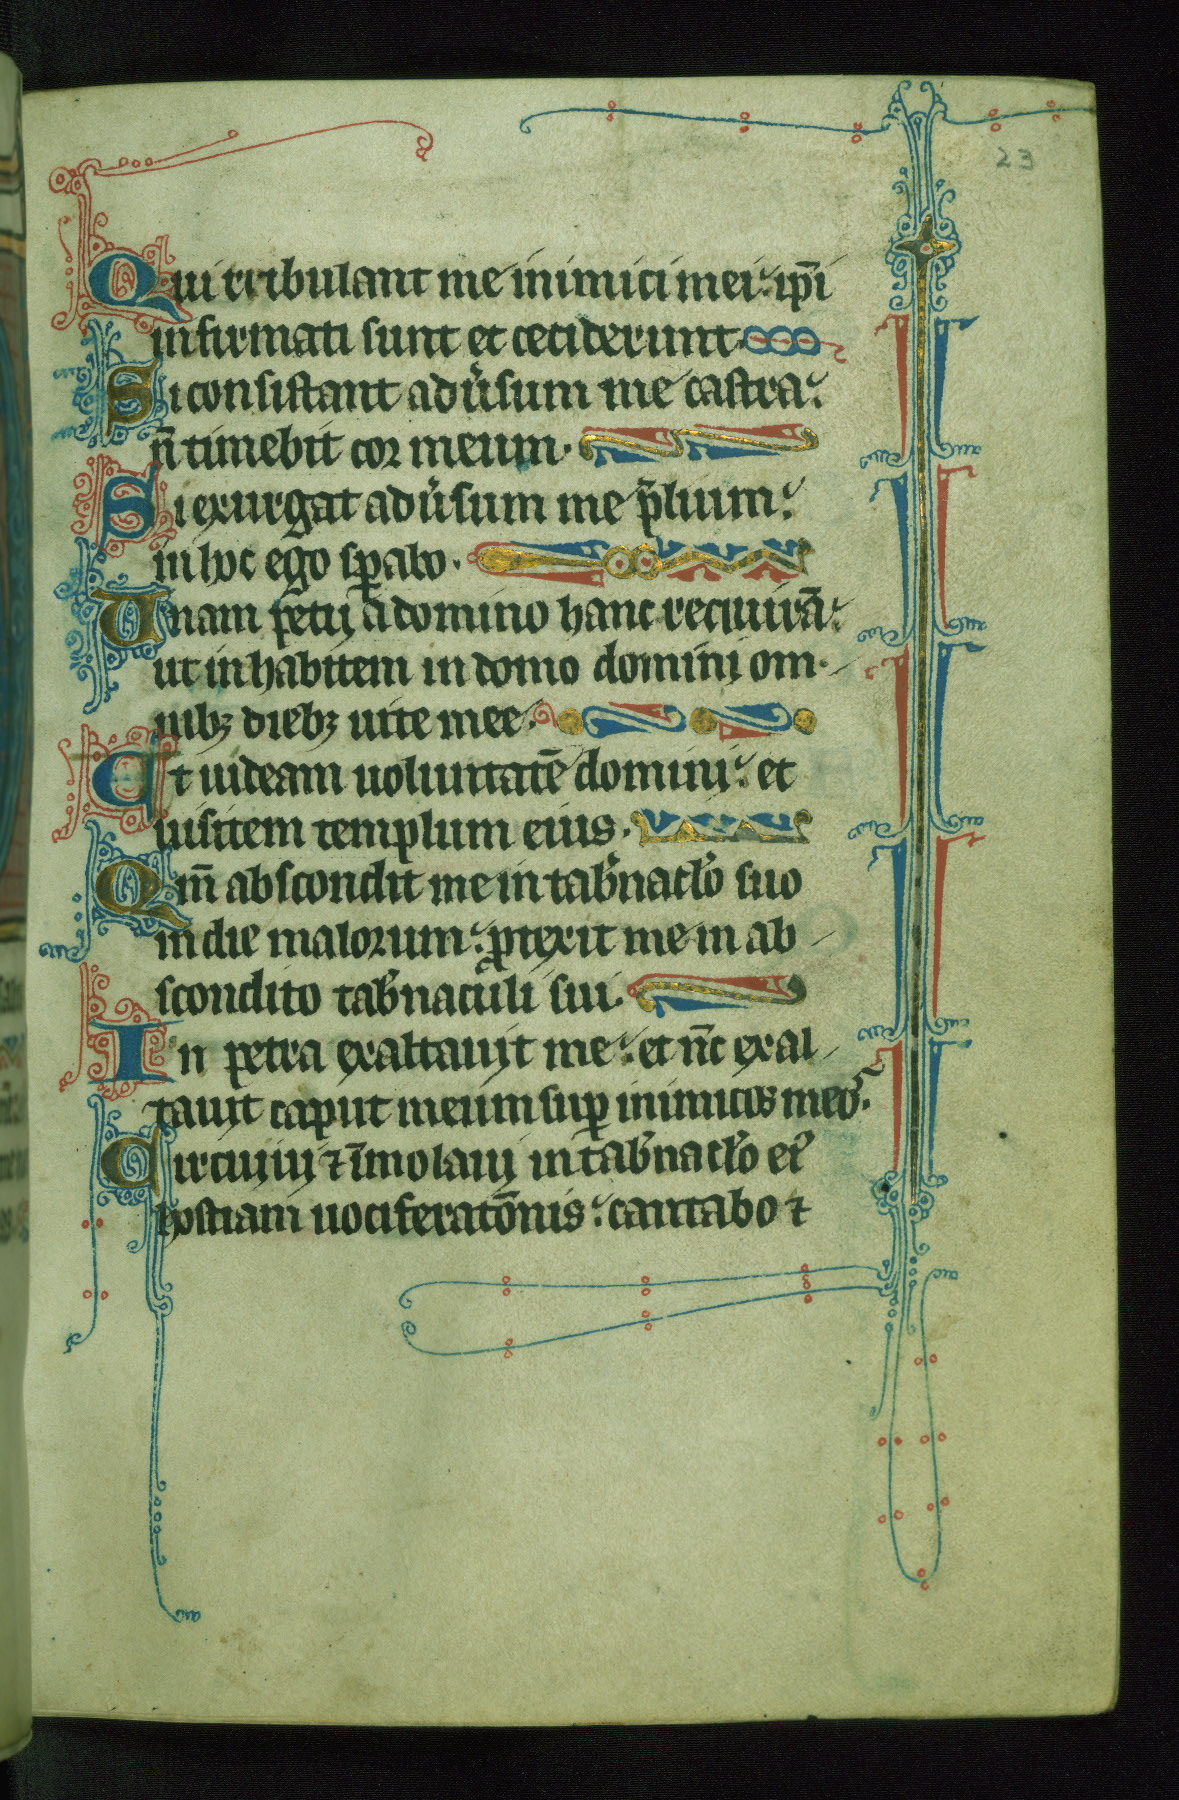 23
Qui tribulant me inimici mei: ip̄i
infirmati sunt et ceciderunt.
Si consistant adu̓sum me castra:
n̄ timebit cor meum.
Si exurgat adu̓sum me p̄lium:
in hoc ego sꝑabo.
Unam petij a domino hanc requirā:
ut inhabitem in domo domini om
nibꝫ diebꝫ uite mee.
Ut uideam uoluntatē domini: et
uisitem templum eius.
Qm̄ abscondit me in tab̓nac̓lo suo
in die malorum: ꝓtexit me in ab
scondito tab̓naculi sui.
In petra exaltauit me: et nc̄ exal
tauit caput meum suꝑ inimicos meos.
Circuiui ⁊ īmolaui in tab̓nac̓lo ei᾿
hostiam uociferatōnis: cantabo ⁊